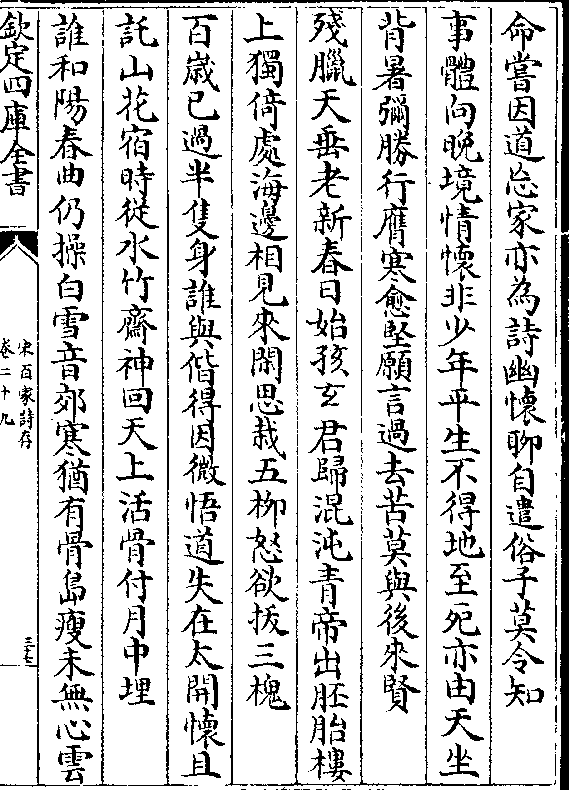 命嘗因道忘家亦為詩幽懷聊自遣俗子莫令知
事體向晩境情懷非少年平生不得地至死亦由天坐
背暑彌勝行膺寒愈堅願言過去苦莫與後來賢
殘臘天垂老新春日始孩玄君歸混沌青帝出胚胎樓
上獨倚處海邊相見來閑思栽五柳怒欲拔三槐
百嵗已過半隻身誰與偕得因微悟道失在太開懷且
託山花宿時從水竹齋神回天上活骨付月中埋
誰和陽春曲仍操白雪音郊寒猶有骨島瘦未無心雲
欽定四庫全書
宋百家詩存
卷二十九
三十七